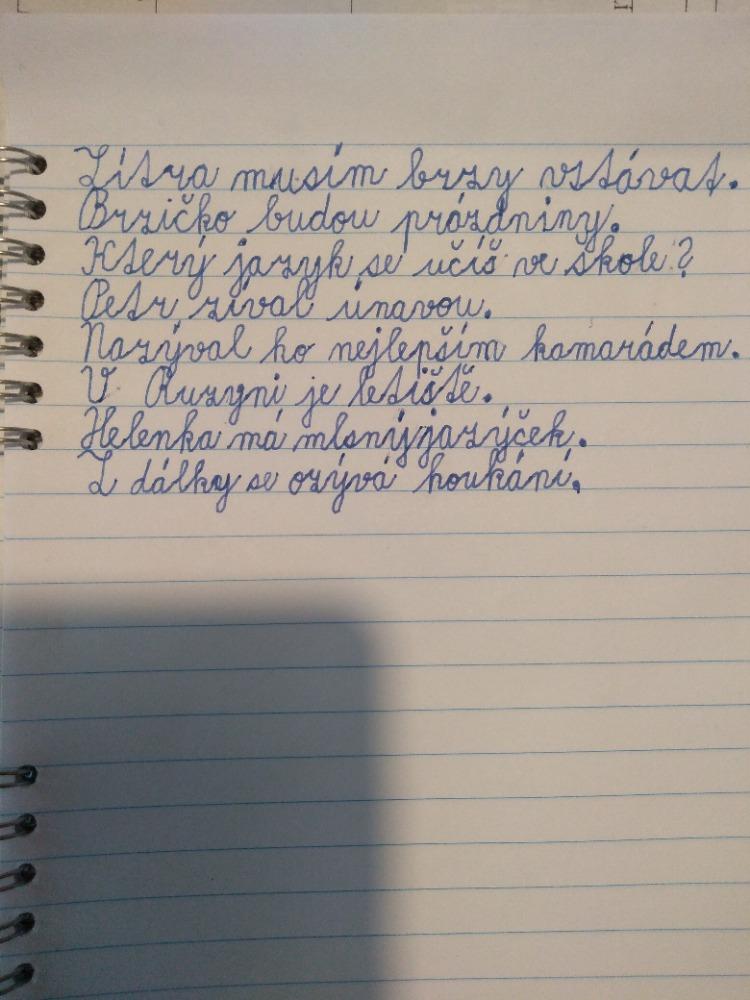 Zítra musím brzy vstávat.
Brzičko budou prázdniny.
Který jazyk se učíš ve škole?
Petr zíval únavou.
Nazýval ho nejlepším kamarádem.
V Ruzyni je letiště.
Helenka má mlsný jazýček.
Z dálky se ozývá houkání.